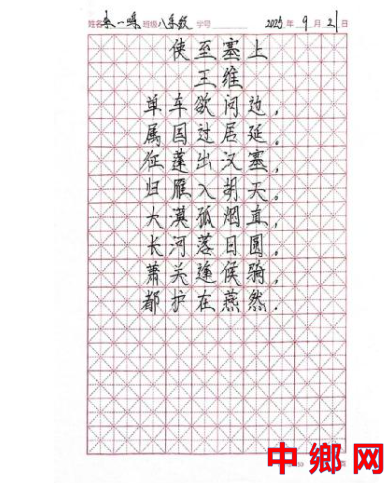 姓名 一 班级 八 学号 2023年9月21日
使至塞上
王维
单车欲问边，
属国过居延。
征蓬出汉塞，
归雁入胡天。
大漠孤烟直，
长河落日圆。
萧关逢候骑，
都护在燕然。
中鄉网